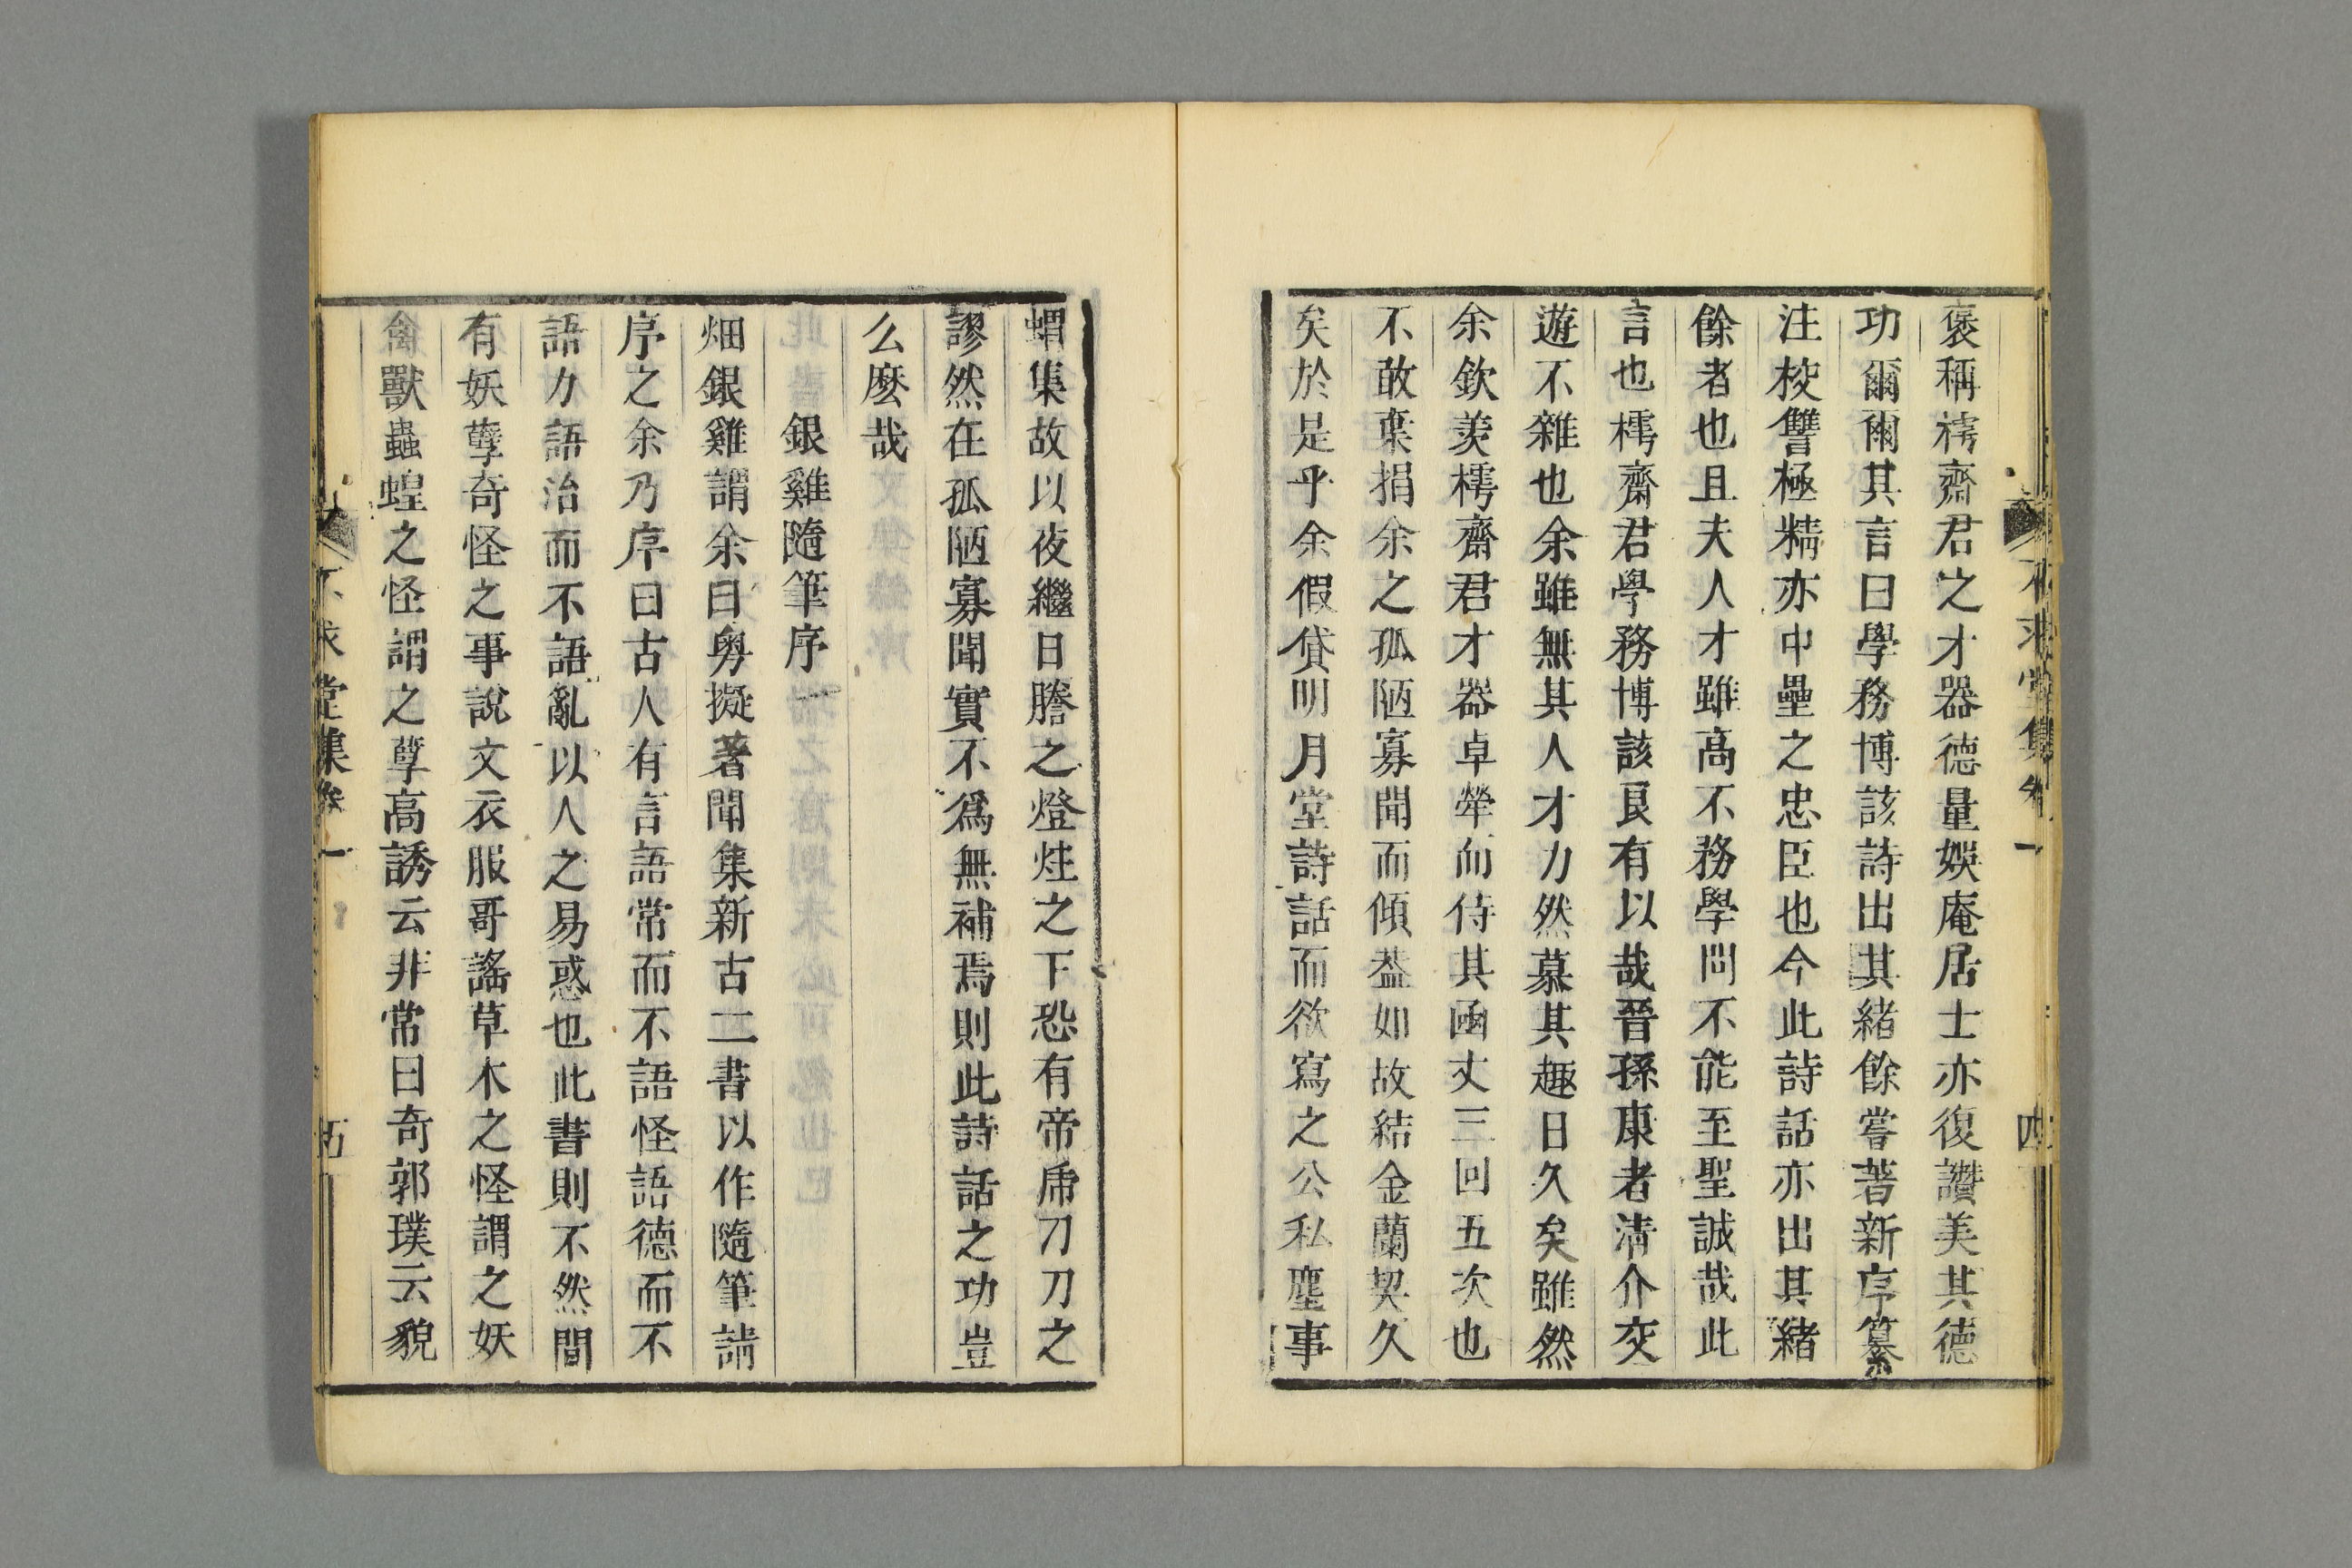 褒稱樗齋君之才器德量娛庵居士亦復讚美其德
功爾爾其言曰學務博該詩出其緒餘嘗著新序纂
注校讐極精亦中壘之忠臣也今此詩話亦出其緒
餘者也且夫人才雖高不務學問不能至聖誠哉此
言也樗齋君學務博該良有以哉晉孫康者淸介交
遊不雜也余雖無其人才力然慕其趣日久矣雖然
余欽羨樗齋君才器卓犖而侍其函丈三回五次也
不敢棄捐余之孤陋寡聞而傾葢如故結金蘭契久
矣於是乎余假貸明月堂詩話而欲寫之公私塵事
蝟集故以夜繼日謄之燈炷之下恐有帝乕刀刀之
謬然在孤陋寡聞實不爲無補焉則此詩話之功豈
么麽哉
銀雞隨筆序
畑銀雞謂余曰粤擬著聞集新古二書以作隨筆請
序之余乃序曰古人有言語常而不語怪語德而不
語力語治而不語亂以人之易惑也此書則不然間
有妖孽奇怪之事說文衣服哥謠草木之怪謂之妖
禽獸蟲蝗之怪謂之孽高誘云非常曰奇郭璞云貌
堂集卷一
五